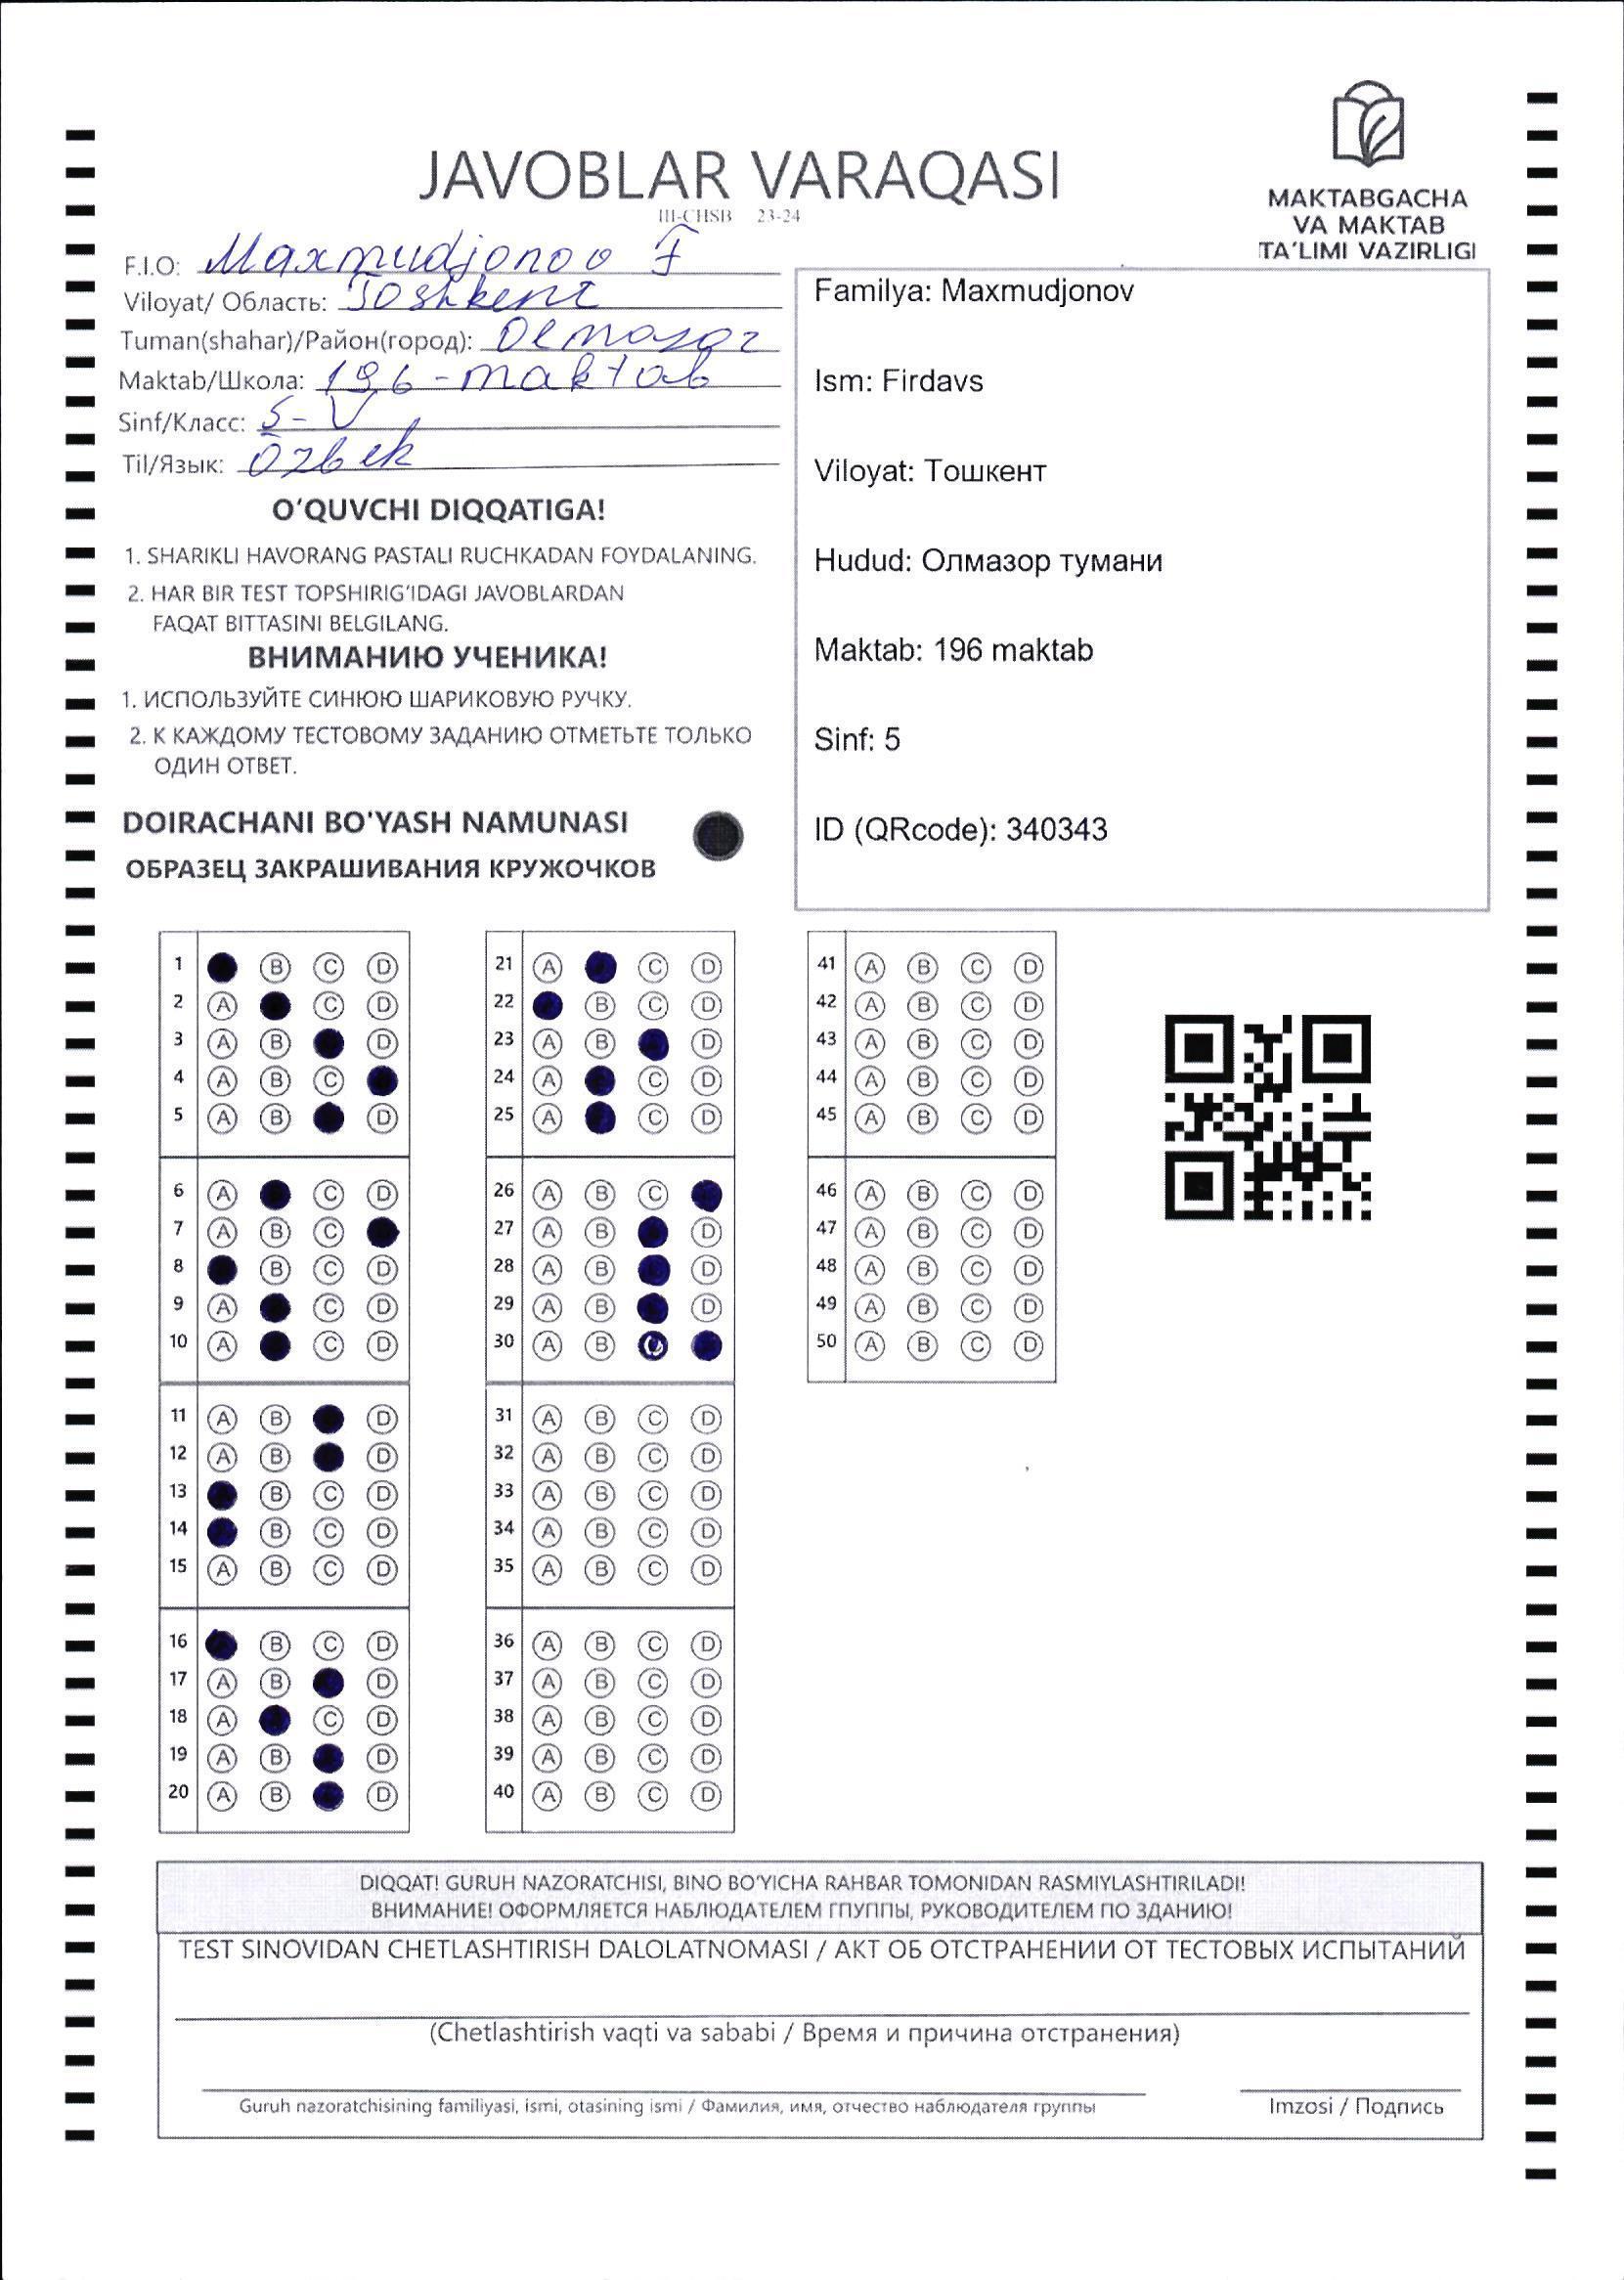 JAVOBLAR VARAQASI
III-CHSB 23-24
MAKTABGACHA
VA MAKTAB
TA'LIMI VAZIRLIGI
F.I.O: Maxmudjonov F
Viloyat/ Область: Toshkent
Tuman(shahar)/Район(город): Olmazor
Maktab/Школа: 196-maktab
Sinf/Класс: 5-V
Til/Язык: Özbek
O'QUVCHI DIQQATIGA!
1. SHARIKLI HAVORANG PASTALI RUCHKADAN FOYDALANING.
2. HAR BIR TEST TOPSHIRIG'IDAGI JAVOBLARDAN
FAQAT BITTASINI BELGILANG.
ВНИМАНИЮ УЧЕНИКА!
1. ИСПОЛЬЗУЙТЕ СИНЮЮ ШАРИКОВУЮ РУЧКУ.
2. К КАЖДОМУ ТЕСТОВОМУ ЗАДАНИЮ ОТМЕТЬТЕ ТОЛЬКО
ОДИН ОТВЕТ.
DOIRACHANI BO'YASH NAMUNASI
ОБРАЗЕЦ ЗАКРАШИВАНИЯ КРУЖОЧКОВ
Familya: Maxmudjonov
Ism: Firdavs
Viloyat: Тошкент
Hudud: Олмазор тумани
Maktab: 196 maktab
Sinf: 5
ID (QRcode): 340343
1 B C D
2 A C D
3 A B D
4 A B C
5 A B D
6 A C D
7 A B C
8 B C D
9 A C D
10 A C D
11 A B D
12 A B D
13 B C D
14 B C D
15 A B C D
16 B C D
17 A B D
18 A C D
19 A B D
20 A B D
21 A C D
22 B C D
23 A B D
24 A C D
25 A C D
26 A B C
27 A B D
28 A B D
29 A B D
30 A B C
31 A B C D
32 A B C D
33 A B C D
34 A B C D
35 A B C D
36 A B C D
37 A B C D
38 A B C D
39 A B C D
40 A B C D
41 A B C D
42 A B C D
43 A B C D
44 A B C D
45 A B C D
46 A B C D
47 A B C D
48 A B C D
49 A B C D
50 A B C D
DIQQAT! GURUH NAZORATCHISI, BINO BO'YICHA RAHBAR TOMONIDAN RASMIYLASHTIRILADI!
ВНИМАНИЕ! ОФОРМЛЯЕТСЯ НАБЛЮДАТЕЛЕМ ГПУППЫ, РУКОВОДИТЕЛЕМ ПО ЗДАНИЮ!
TEST SINOVIDAN CHETLASHTIRISH DALOLATNOMASI / АКТ ОБ ОТСТРАНЕНИИ ОТ ТЕСТОВЫХ ИСПЫТАНИЙ
(Chetlashtirish vaqti va sababi / Время и причина отстранения)
Guruh nazoratchisining familiyasi, ismi, otasining ismi / Фамилия, имя, отчество наблюдателя группы
Imzosi / Подпись